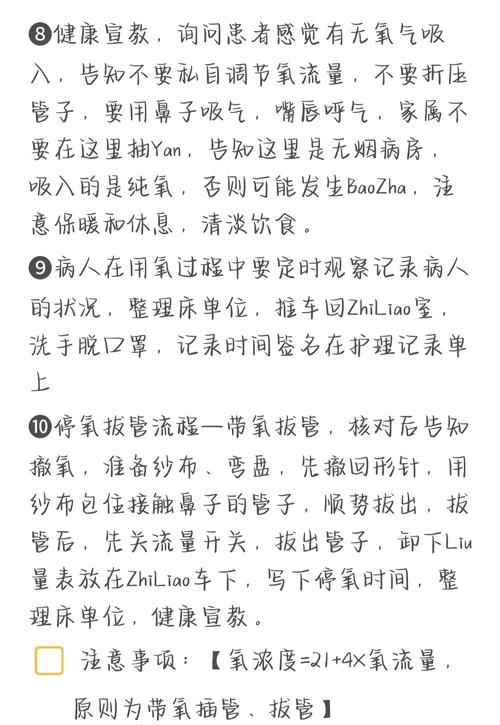 ❽健康宣教，询问患者感觉有无氧气吸
入，告知不要私自调节氧流量，不要折压
管子，要用鼻子吸气，嘴唇呼气，家属不
要在这里抽Yan，告知这里是无烟病房，
吸入的是纯氧，否则可能发生BaoZha，注
意保暖和休息，清淡饮食。
❾病人在用氧过程中要定时观察记录病人
的状况，整理床单位，推车回ZhiLiao室，
洗手脱口罩，记录时间签名在护理记录单
上
❿停氧拔管流程—带氧拔管，核对后告知
撤氧，准备纱布、弯盘，先撤回形针，用
纱布包住接触鼻子的管子，顺势拔出，拔
管后，先关流量开关，拔出管子，卸下Liu
量表放在ZhiLiao车下，写下停氧时间，整
理床单位，健康宣教。
注意事项：【氧浓度=21+4×氧流量，
原则为带氧插管、拔管】